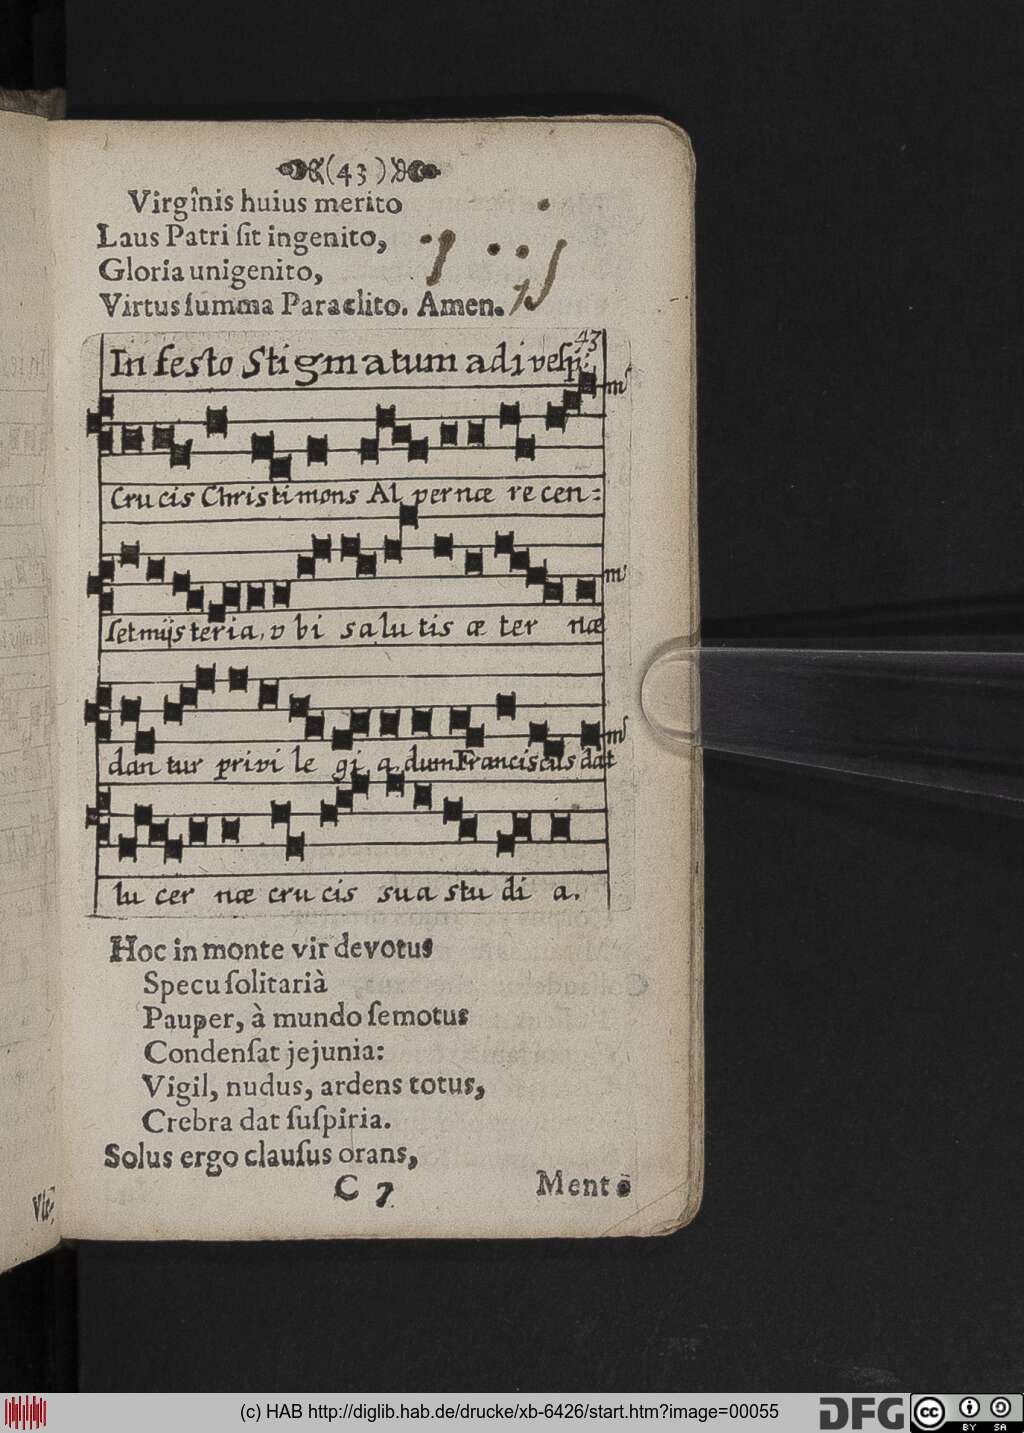 (43)
Virgînis huius merito
Laus Patri ſit ingenito,
Gloria unigenito,
Virtus ſumma Paraclito. Amen.
43
In festo Stigmatum adi veſp:
Cru cis Christi mons Al pernæ re cen:
ſet mijs teria, v bi salu tis æ ter næ
dan tur privi le gi a, dum Franciscus dat
lu cer næ cru cis sua stu di a.
Hoc in monte vir devotus
Specu ſolitarià
Pauper, à mundo ſemotus
Condenſat jejunia:
Vigil, nudus, ardens totus,
Crebra dat ſuſpiria.
Solus ergo clauſus orans,
C 7 Mente
(c) HAB http://diglib.hab.de/drucke/xb-6426/start.htm?image=00055
DFG
cc BY SA